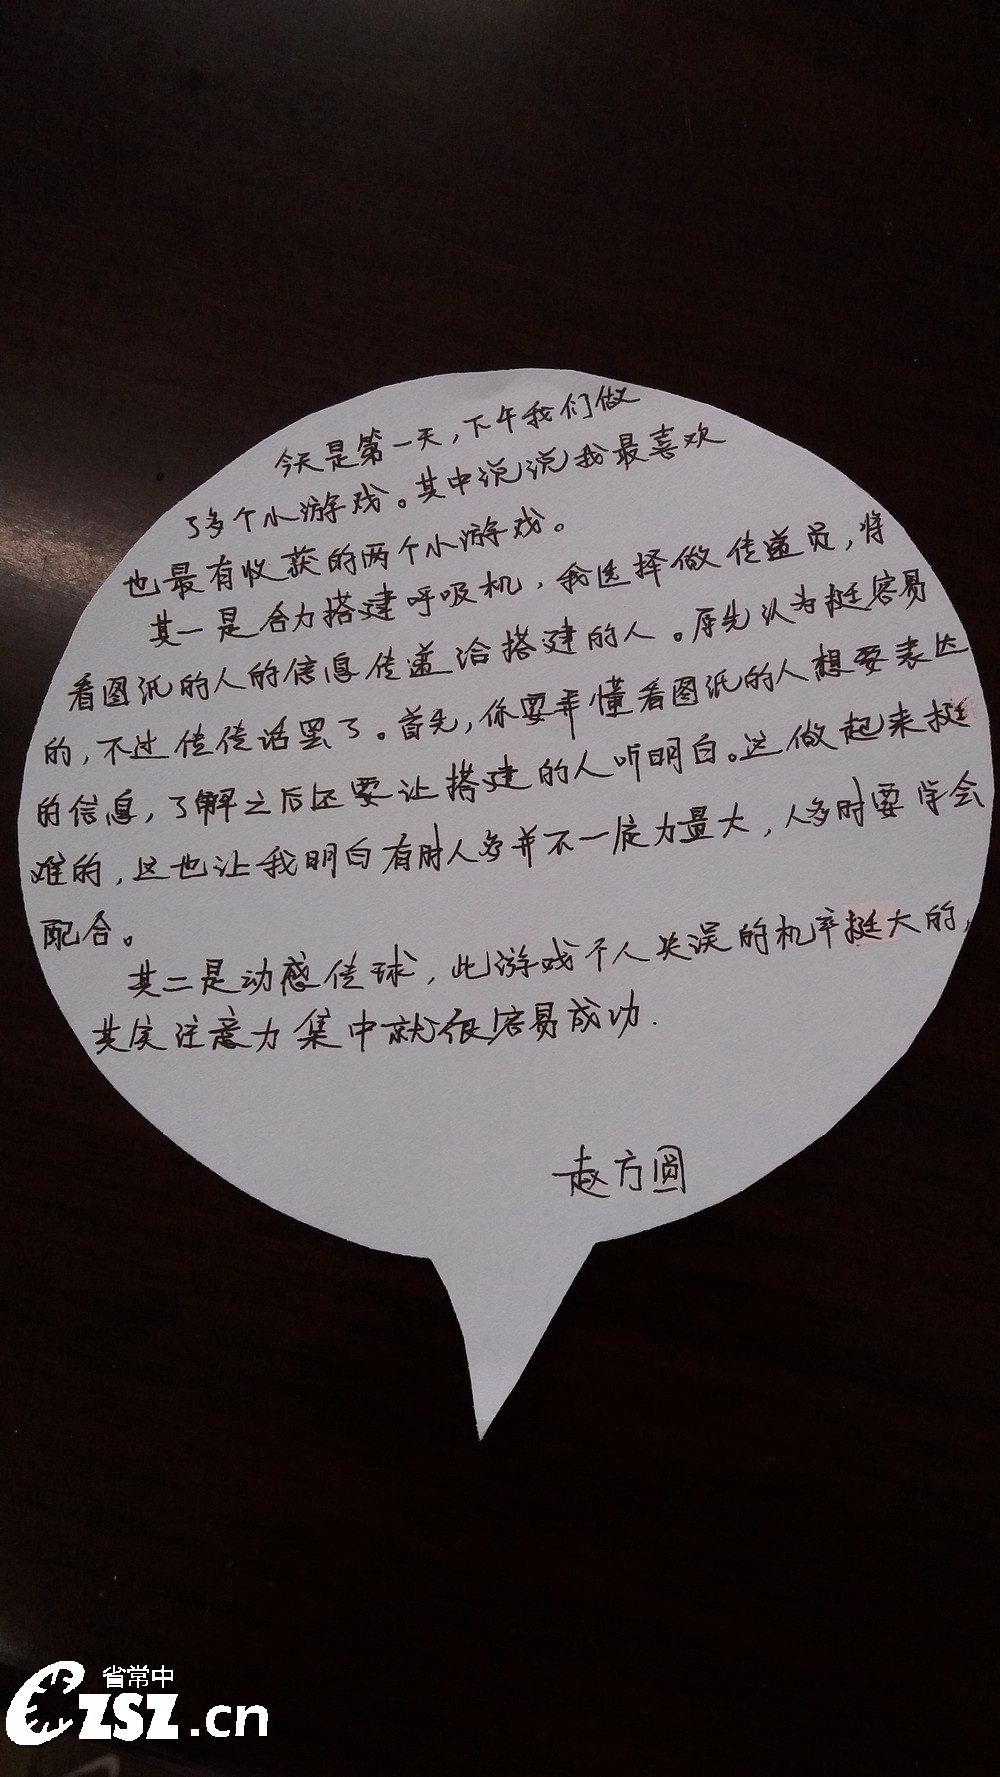 今天是第一天，下午我们做
了多个小游戏。其中说说我最喜欢
也最有收获的两个小游戏。
其一是合力搭建呼吸机，我选择做传递员，将
看图纸的人的信息传递给搭建的人。原先认为挺容易
的，不过传传话罢了。首先，你要弄懂看图纸的人想要表达
的信息，了解之后还要让搭建的人听明白。这做起来挺
难的，这也让我明白有时人多并不一定力量大，人多时要学会
配合。
其二是动感传球，此游戏个人失误的机率挺大的，
其实注意力集中就很容易成功.
赵方圆
省常中
CZSZ.cn